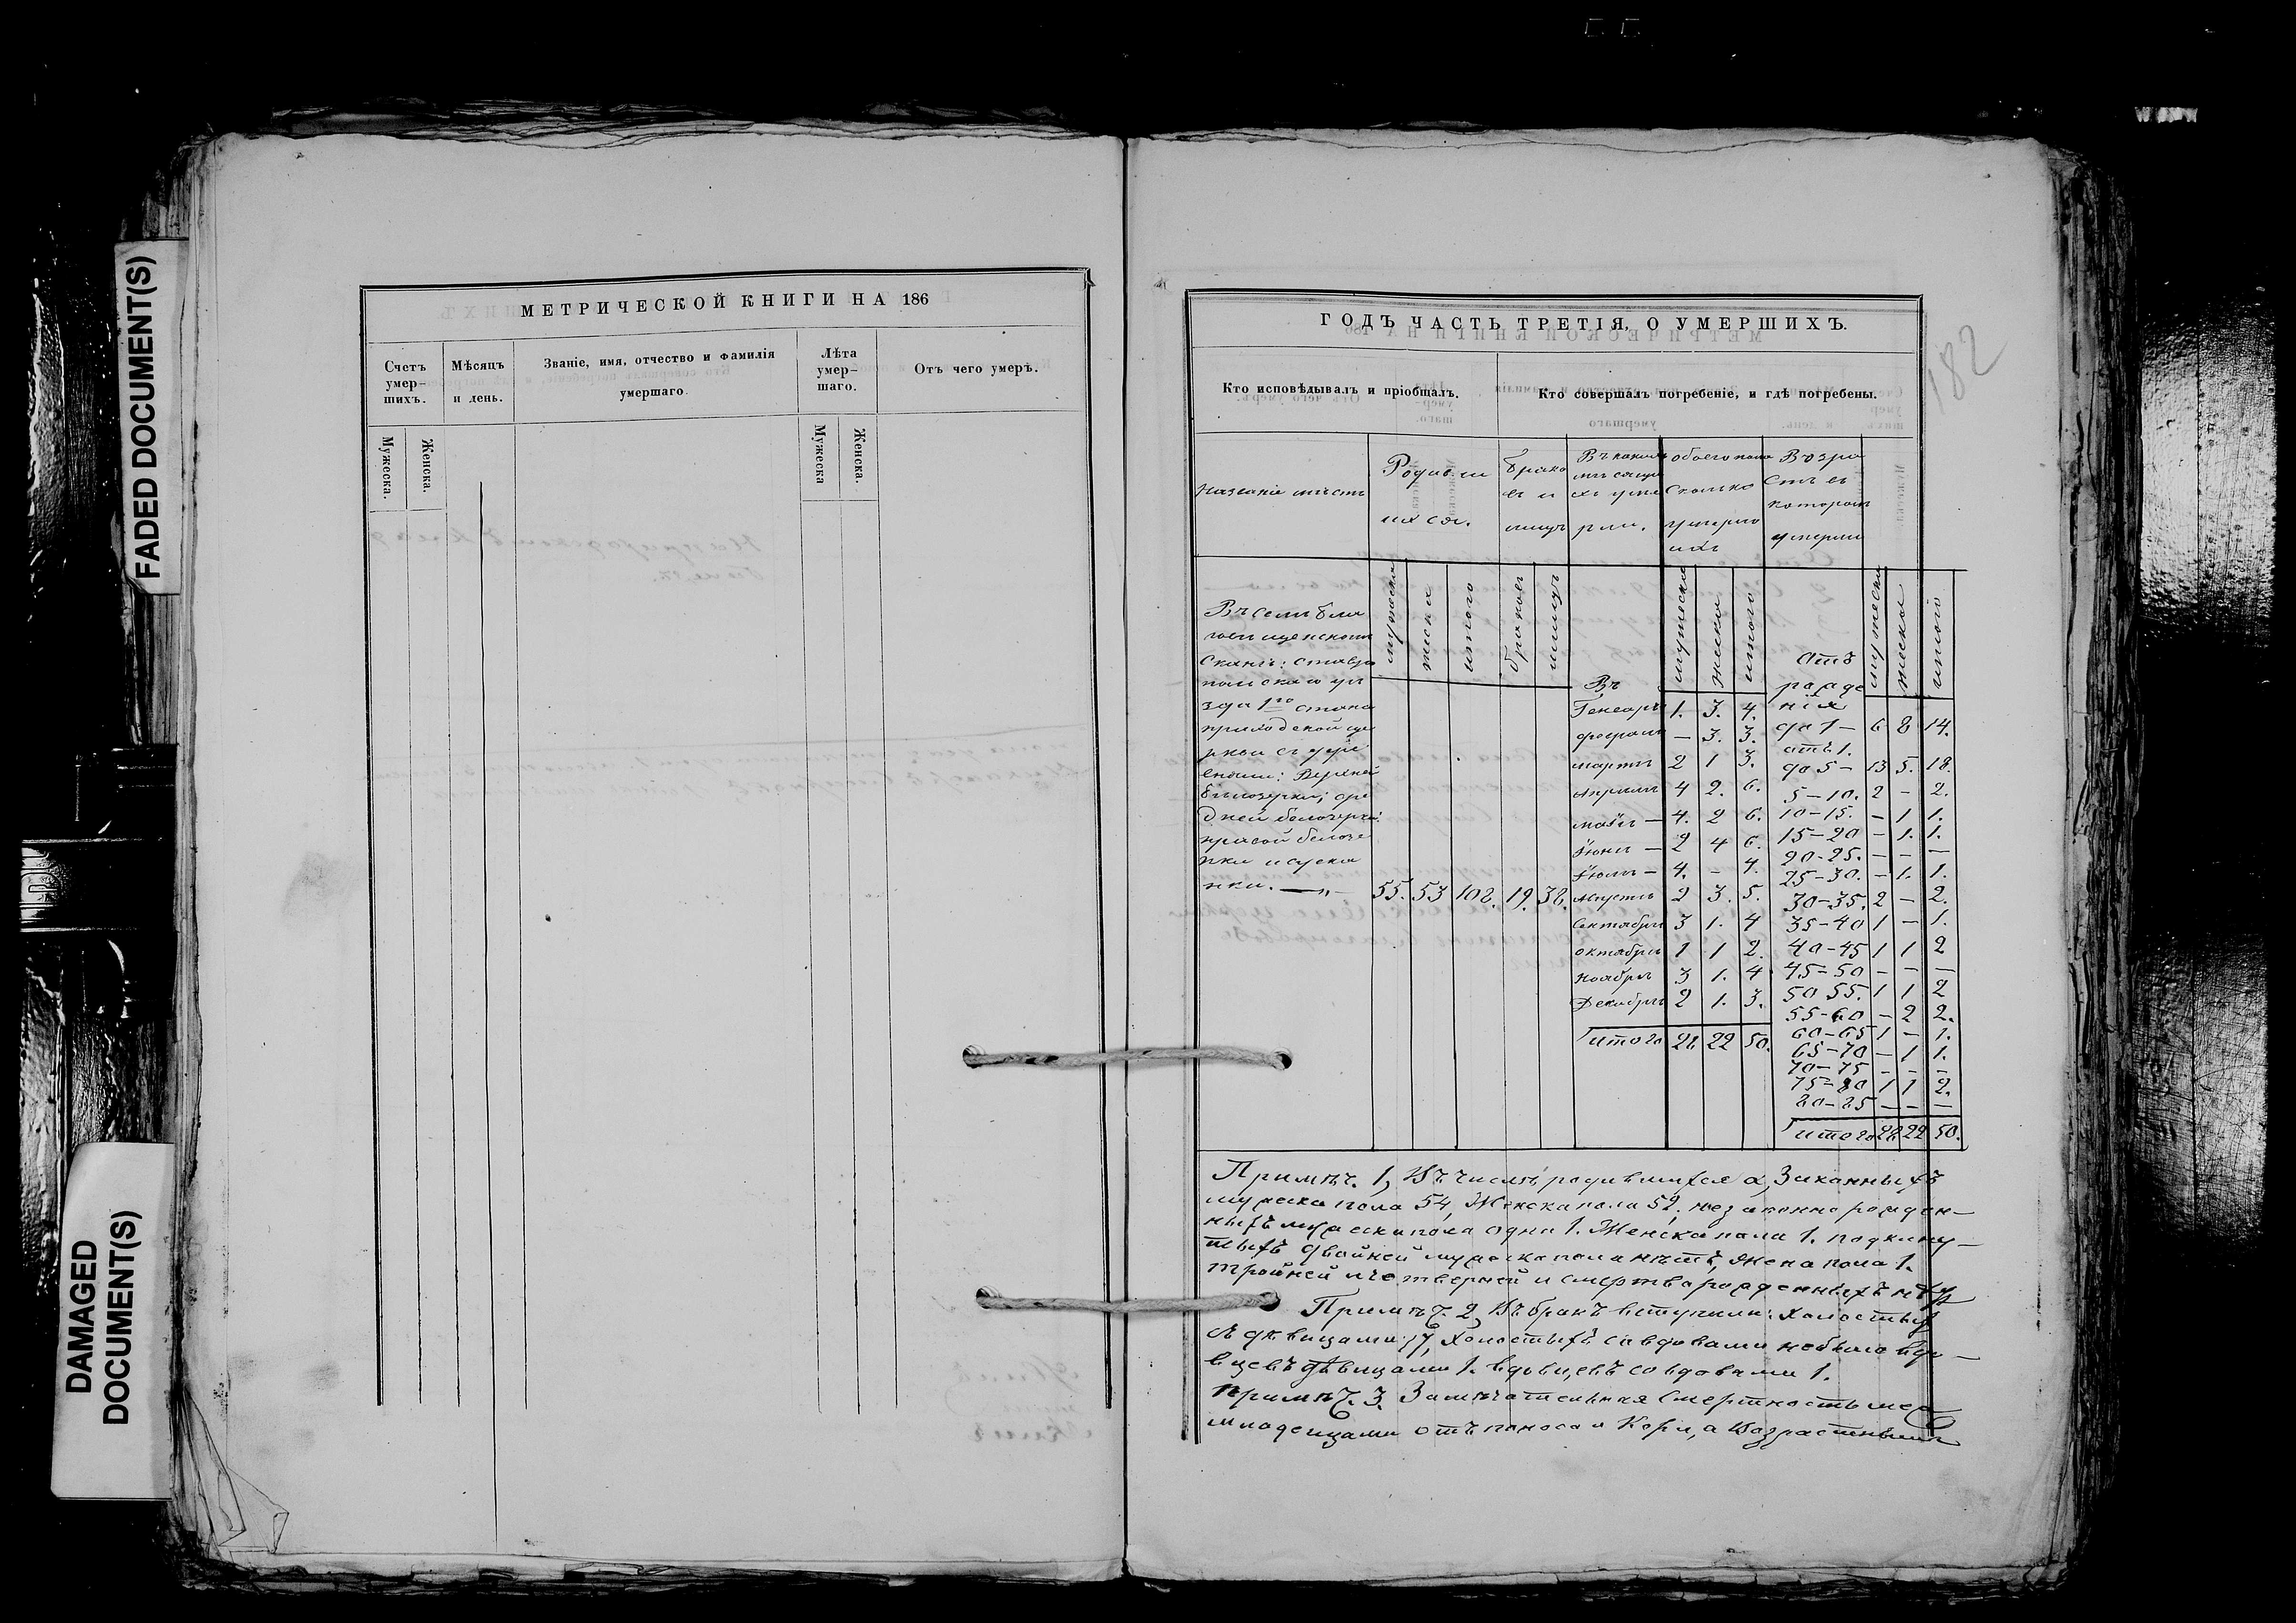 FADED DOCUMENT(S)
DAMAGED
DOCUMENT(S)
МЕТРИЧЕСКОЙ КНИГИ НА 186
Счетъ
умер-
шихъ.
Мѣсяцъ
и день.
Званіе, имя, отчество и фамилія
умершаго.
Лѣта
умер-
шаго.
Отъ чего умеръ.
Мужеска.
Женска.
Мужеска
Женска.
182
ГОДЪ ЧАСТЬ ТРЕТІЯ, О УМЕРШИХЪ.
Кто исповѣдывалъ и пріобщалъ.
Кто совершалъ погребеніе, и гдѣ погребены.
Названіе мѣстъ
Родив-ш
ихся.
брако
въ и
лицъ
рли.
обоего пола
сколько
умерло
Возра
стъ въ
котором
умерли
мужеска
женска
итого
браковъ
лицъ
мужеска
женска
итого
мужеска
женска
итого
Въ селѣ Бла
говѣщенском
ставро
польскаго уѣ
зда 1го стана
приходской це
ркви съ дере
внями: Верхней
бѣлозерки; сре
дней белозерки
правой белозе
рки и суска
нки. — „ — 55. 53 108. 19. 38.
Въ
Генварѣ — 1. 3. 4.
февралѣ — 3. 3.
мартѣ 2 1 3.
Апрѣлѣ 4 2. 6.
маѣ — 4. 2 6.
Іюнѣ — 2 4 6.
Іюлѣ — 4. - 4.
Августѣ 2 3. 5.
Сентябрѣ 3 1. 4
октябрѣ 1 1 2.
Ноябрѣ 3 1. 4
Декабрѣ 2 1. 3.
итого 28 22 50.
Отъ
рожде
нія
до 1 — 6 8 14.
отъ 1.
до 5 — 13 5. 18.
5 — 10. 2 - 2.
10 — 15. — 1 1.
15 — 20 — 1. 1.
20 - 25. — — —
25 — 30. — 1. 1.
30 — 35. 2 — 2.
35 — 40 1 — 1.
40 — 45 1 1 2
45 — 50 — — —
50 55. 1 1 2
55 — 60 — 2 2.
60 — 65 1 — 1.
65 — 70 — 1 1.
70 — 75 — — —
75 — 80 1 1 2.
80 — 85 — — —
итого 28 22 50.
Примѣч. 1, Въ числѣ родившихся а, Законныхъ
мужеска пола 54, Женска пола 52. незаконно рожден—
ныхъ мужеска пола одна 1. Женска пола 1. подкину—
тыхъ двойней мужеска пола нѣтъ, жена пола 1.
тройней и четверней и смертворожденныхъ нѣтъ
Примѣч. 2, Въ бракъ вступили: холостых
съ дѣвицами 17, Холостыхъ со вдовами небыло вдо—
вцевъ дѣвицами 1. вдовцевъ со вдовами 1.
Примѣч. 3. Замѣчательная Смертность меж
младенцами отъ поноса и Кори, а Возрастными